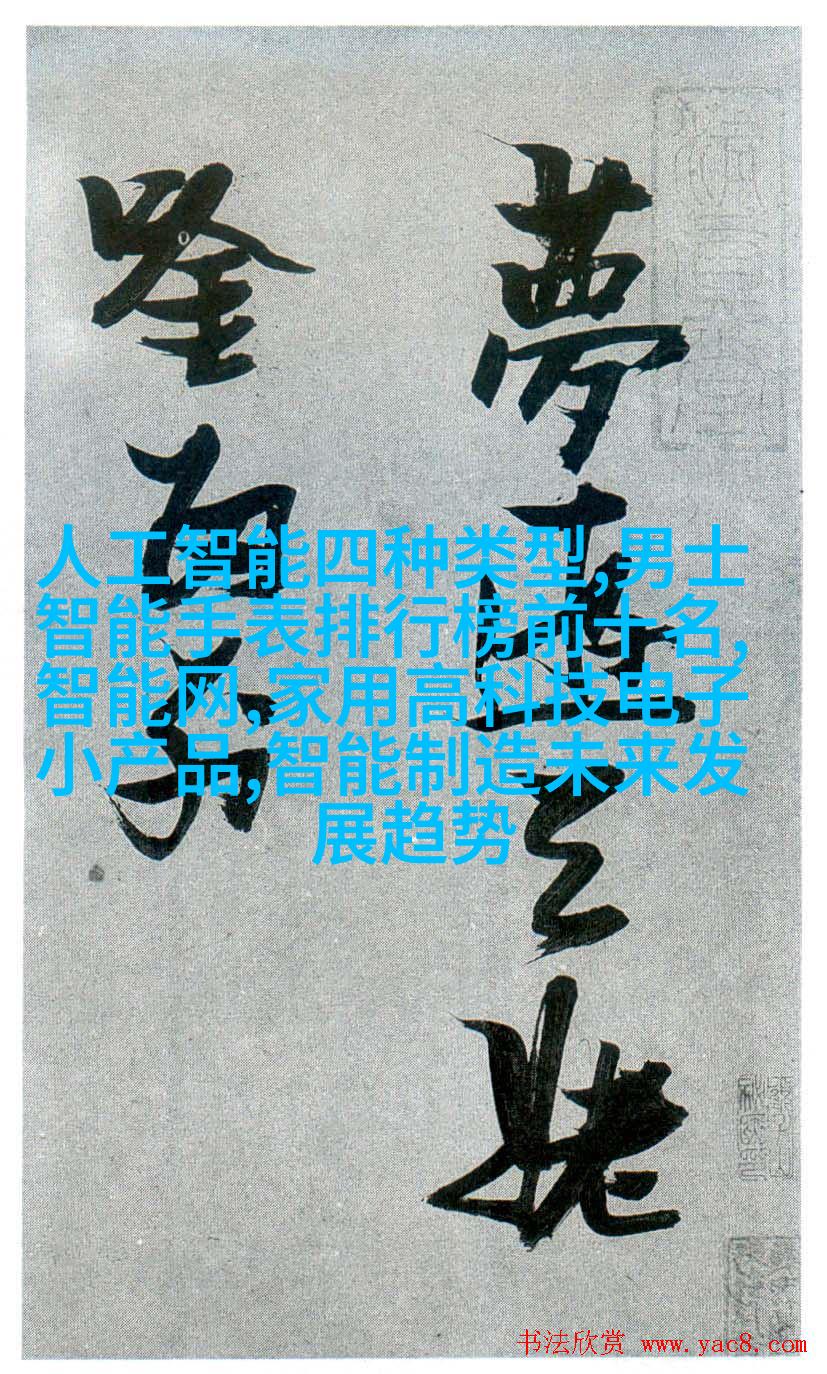 夢遊天姥
唫
人工智能四种类型,男士
智能手表排行榜前十名,
智能网,家用高科技电子
小产品,智能制造未来发
展趋势
书法欣赏 www.yac8.com